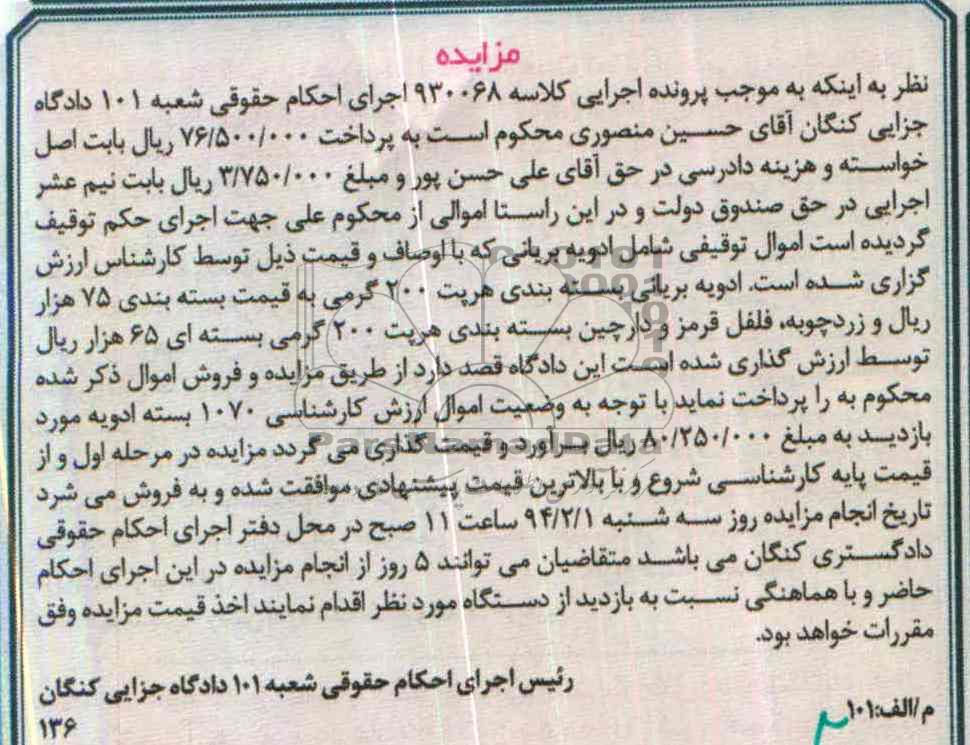 مزایده
نظر به اینکه به موجب پرونده اجرایی کلاسه ۹۳۰۰۶۸ اجرای احکام حقوقی شعبه ۱۰۱ دادگاه
جزایی کنگان آقای حسین منصوری محکوم است به پرداخت ۷۶/۵۰۰/۰۰۰ ریال بابت اصل
خواسته و هزینه دادرسی در حق آقای علی حسن پور و مبلغ ۳/۷۵۰/۰۰۰ ریال بابت نیم عشر
اجرایی در حق صندوق دولت و در این راستا اموالی از محکوم علی جهت اجرای حکم توقیف
گردیده است اموال توقیفی شامل ادویه بریانی که با اوصاف و قیمت ذیل توسط کارشناس ارزش
گزاری شده است. ادویه بریانی بسته بندی هرپت ۲۰۰ گرمی به قیمت بسته بندی ۷۵ هزار
ریال و زردچوبه، فلفل قرمز و دارچین بسته بندی هرپت ۲۰۰ گرمی بسته ای ۶۵ هزار ریال
توسط ارزش گذاری شده است این دادگاه قصد دارد از طریق مزایده و فروش اموال ذکر شده
محکوم به را پرداخت نماید با توجه به وضعیت اموال ارزش کارشناسی ۱۰۷۰ بسته ادویه مورد
بازدید به مبلغ ۸۰/۲۵۰/۰۰۰ ریال برآورد و قیمت گذاری می گردد مزایده در مرحله اول و از
قیمت پایه کارشناسی شروع و با بالاترین قیمت پیشنهادی موافقت شده و به فروش می شرد
تاریخ انجام مزایده روز سه شنبه ۹۴/۲/۱ ساعت ۱۱ صبح در محل دفتر اجرای احکام حقوقی
دادگستری کنگان می باشد متقاضیان می توانند ۵ روز از انجام مزایده در این اجرای احکام
حاضر و با هماهنگی نسبت به بازدید از دستگاه مورد نظر اقدام نمایند اخذ قیمت مزایده وفق
مقررات خواهد بود.
رئیس اجرای احکام حقوقی شعبه ۱۰۱ دادگاه جزایی کنگان
م/الف:۱۰۱
۱۳۶
ParsNamadData